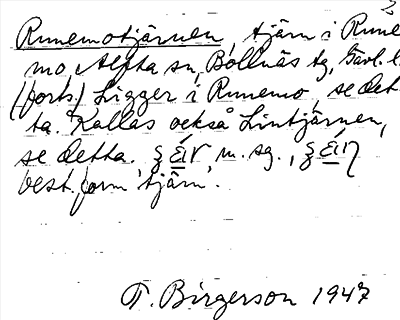 3
Runemotjärnen, tjärn i Rune
mo, Alfta sn, Bollnäs tg, Gävl. l.
(forts) Ligger i Runemo, se det
ta. Kallas också Lintjärnen,
se detta. m. sg.,
best. form tjärn.
T. Birgerson 1947